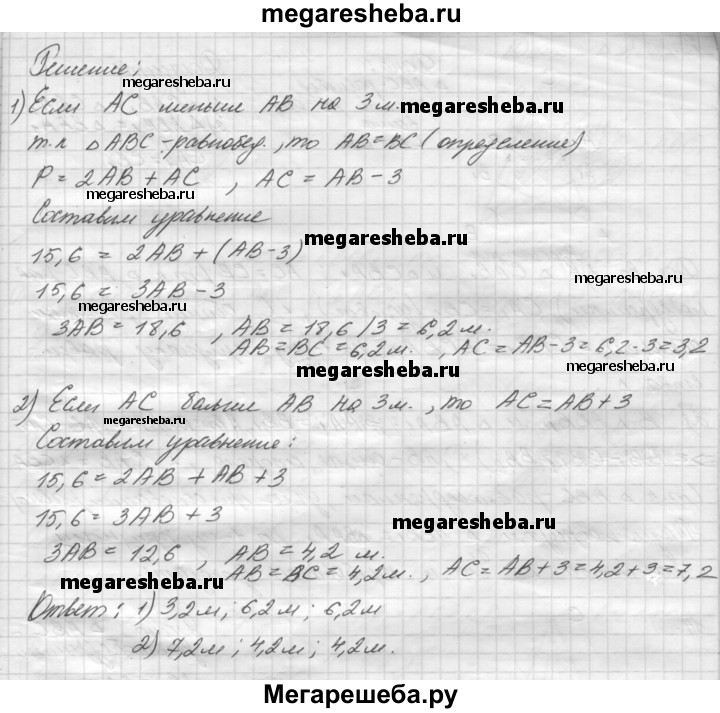 megaresheba.ru
Решение:
megaresheba.ru
1) Если AC меньше AB на 3 м. megaresheba.ru
т.к △ABC - равнобед., то AB = BC (определение)
P = 2AB + AC , AC = AB - 3
megaresheba.ru
Составим уравнение
megaresheba.ru
15,6 = 2AB + (AB - 3)
megaresheba.ru
15,6 = 3AB - 3
megaresheba.ru
3AB = 18,6 , AB = 18,6 / 3 = 6,2 м.
AB = BC = 6,2 м. , AC = AB - 3 = 6,2 - 3 = 3,2
megaresheba.ru megaresheba.ru
2) Если AC больше AB на 3 м. , то AC = AB + 3
megaresheba.ru
Составим уравнение:
15,6 = 2AB + AB + 3
15,6 = 3AB + 3
megaresheba.ru
3AB = 12,6 , AB = 4,2 м.
AB = BC = 4,2 м. , AC = AB + 3 = 4,2 + 3 = 7,2
megaresheba.ru
Ответ: 1) 3,2 м ; 6,2 м ; 6,2 м
2) 7,2 м ; 4,2 м ; 4,2 м.
Мегарешеба.ру